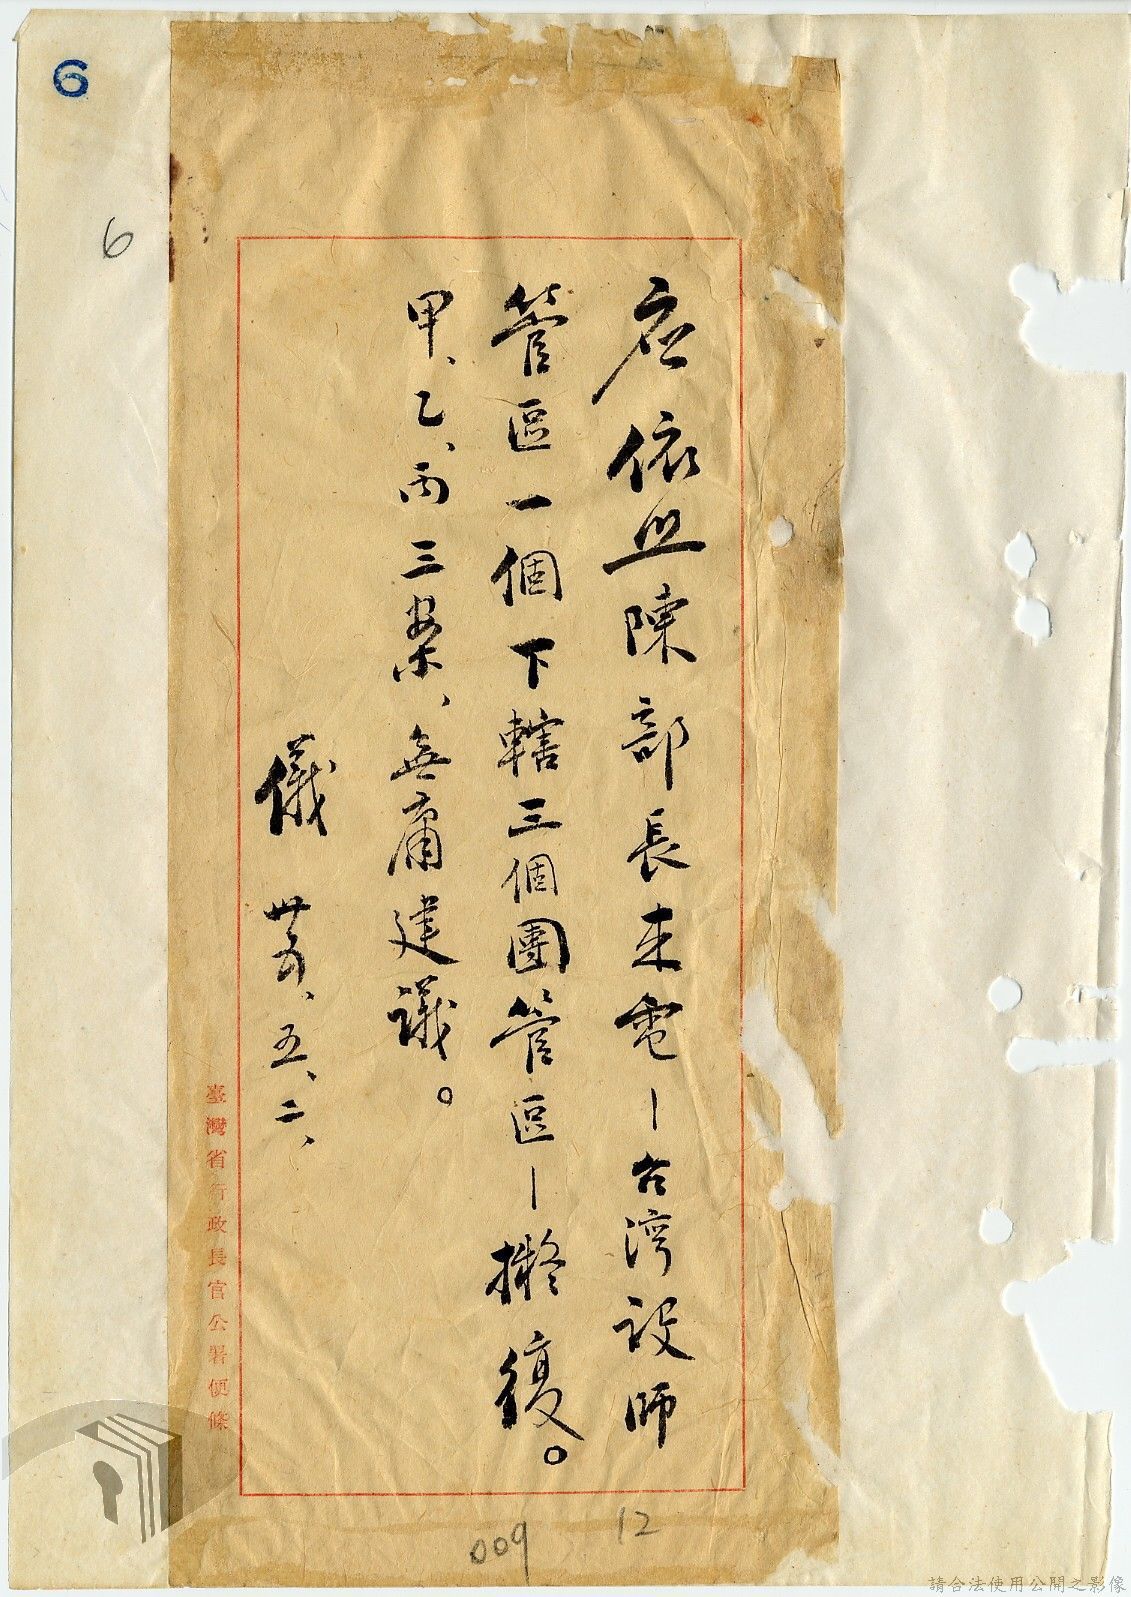 6
6
应依照陳部長来電—台湾設師
管區一個下轄三個團管區—擬復。
甲、乙、丙三案、無庸建議。
儀 卅五、五、二、
臺灣省行政長官公署便條
009
12
請合法使用公開之影像